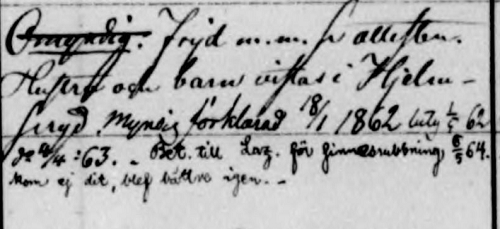 Omyndig. Frejd m.m. se attesten.
Hustru och barn vistas i Hjelm-
seryd. Myndig förklarad 18/1 1862 1/5 62
de 4/4 :63. - Bet. till Laz. för sinnesrubbning, 6/5 64.
kom ej dit, blef bättre igen. -